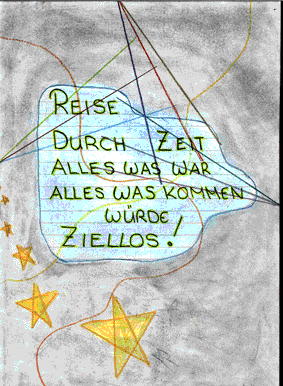 REISE
DURCH ZEIT
ALLES WAS WAR
ALLES WAS KOMMEN
WÜRDE
ZIELLOS!